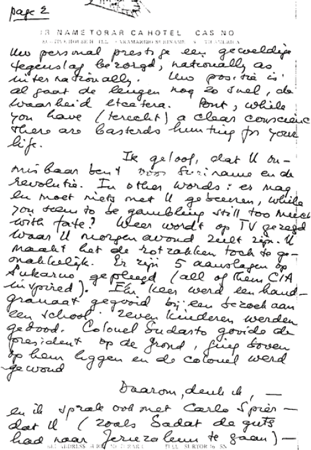 page 2
TORARICA HOTEL CASINO
Uw personal prestige een geweldige
tegenslag bezorgd, nationally as
internationally. Uw positie is:
al gaat de leugen nog zo snel, de
waarheid etcetera. Point, while
you have (terecht) a clear conscience
There are basterds hunting for your
life.
Ik geloof, dat U on-
misbaar bent voor Suriname en de
revolutie. In other words: er mag
en moet niets met U gebeuren, while
you seem to be gambling still too much
with fate? Weer wordt op TV gezegd
waar U morgen avond zult zijn. U
maakt het de rotzakken toch te ge-
makkelijk. Er zijn 5 aanslagen op
Sukarno gepleegd (all of them CIA
inspired). Elke keer werd een hand-
granaat gegooid bij een bezoek aan
een school. Zeven kinderen werden
gedood. Colonel Sudarto gooide de
president op de grond, ging boven
op hem liggen en de colonel werd
gewond
Daarom, denk ik, —
en ik sprak ook met Carlo Spier —
dat U (zoals Sadat de guts
had naar Jeruzalem te gaan) —